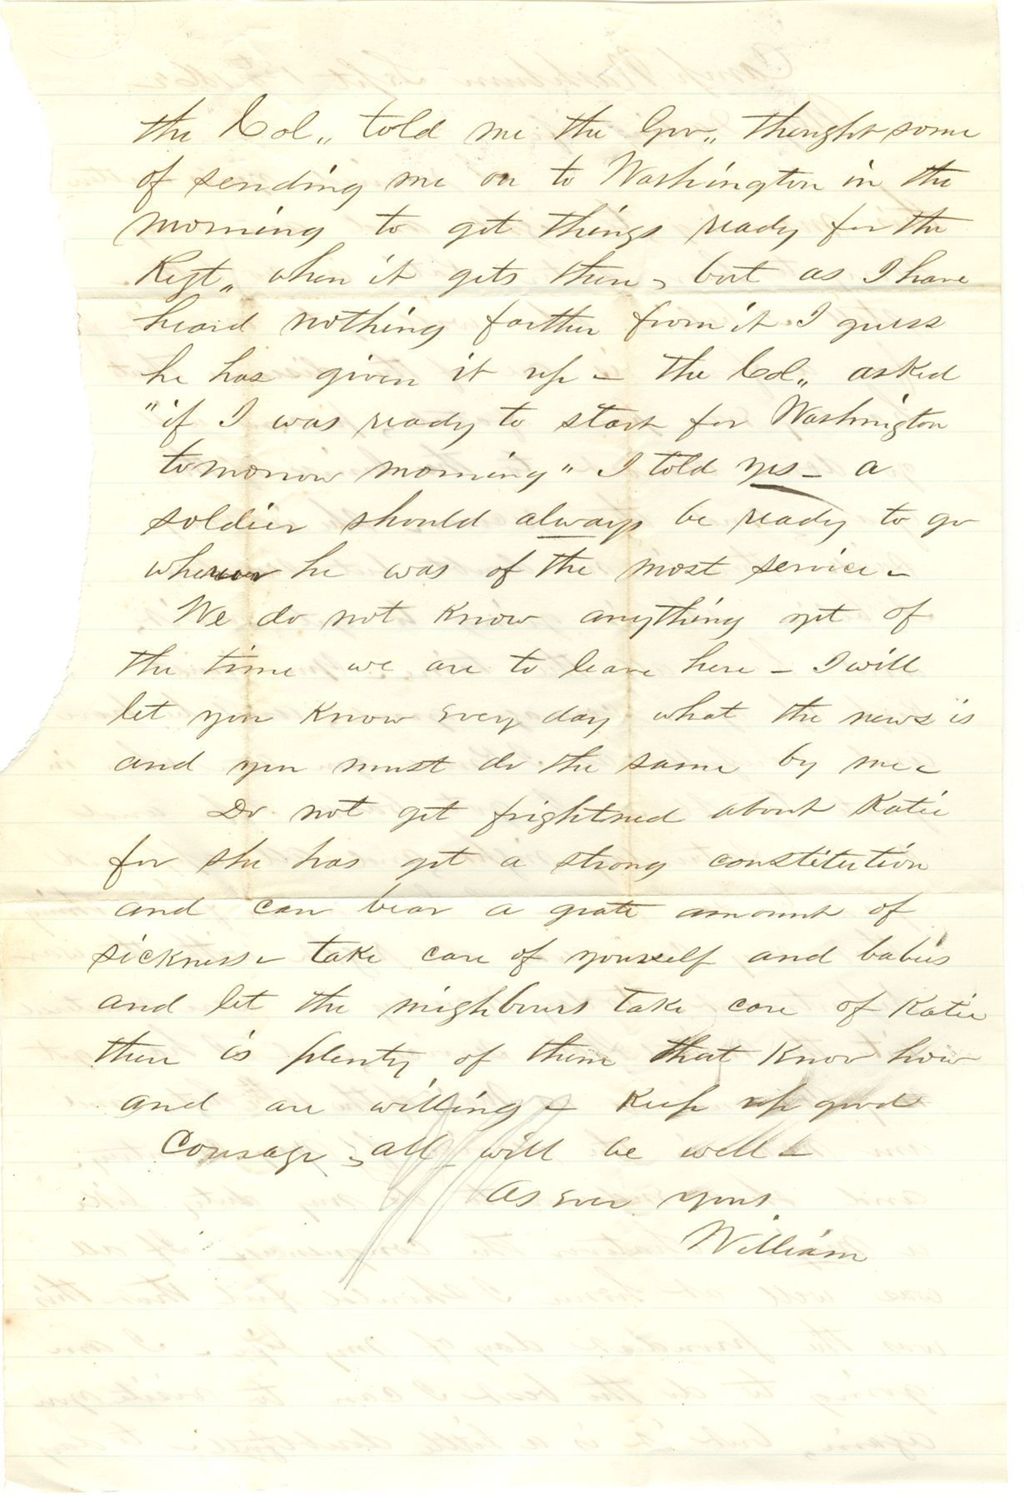 the Col,, told me the Gov,, thought some
of sending me on to Washington in the
morning to get things ready for the
Regt,, when it gets there, but as I have
heard nothing farther from it I guess
he has given it up – the Col,, asked
"if I was ready to start for Washington
tomorrow morning" I told yes – a
soldier should always be ready to go
wherever he was of the most service –
We do not know anything yet of
the time we are to leave here – I will
let you know every day what the news is
and you must do the same by me –
Do not get frightned about Katie
for she has got a strong constitution
and can bear a grate amount of
sickness – take care of yourself and babies
and let the nighbours take care of Katie
there is plenty of them that know how
and are willing – Keep up good
Courage, all will be well –
As ever yours
William